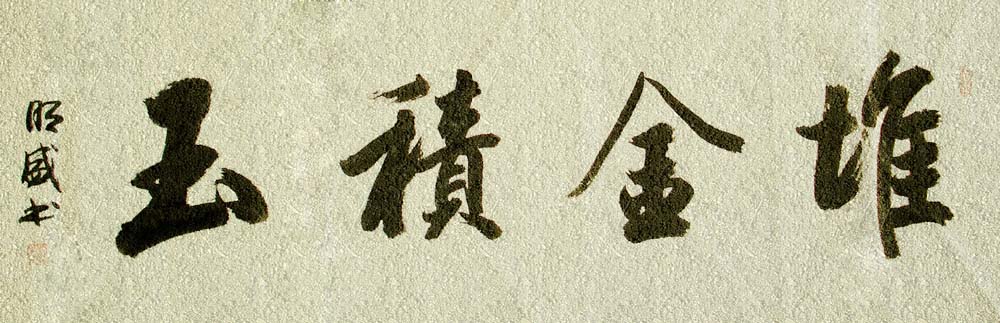 堆金積玉
明盛书